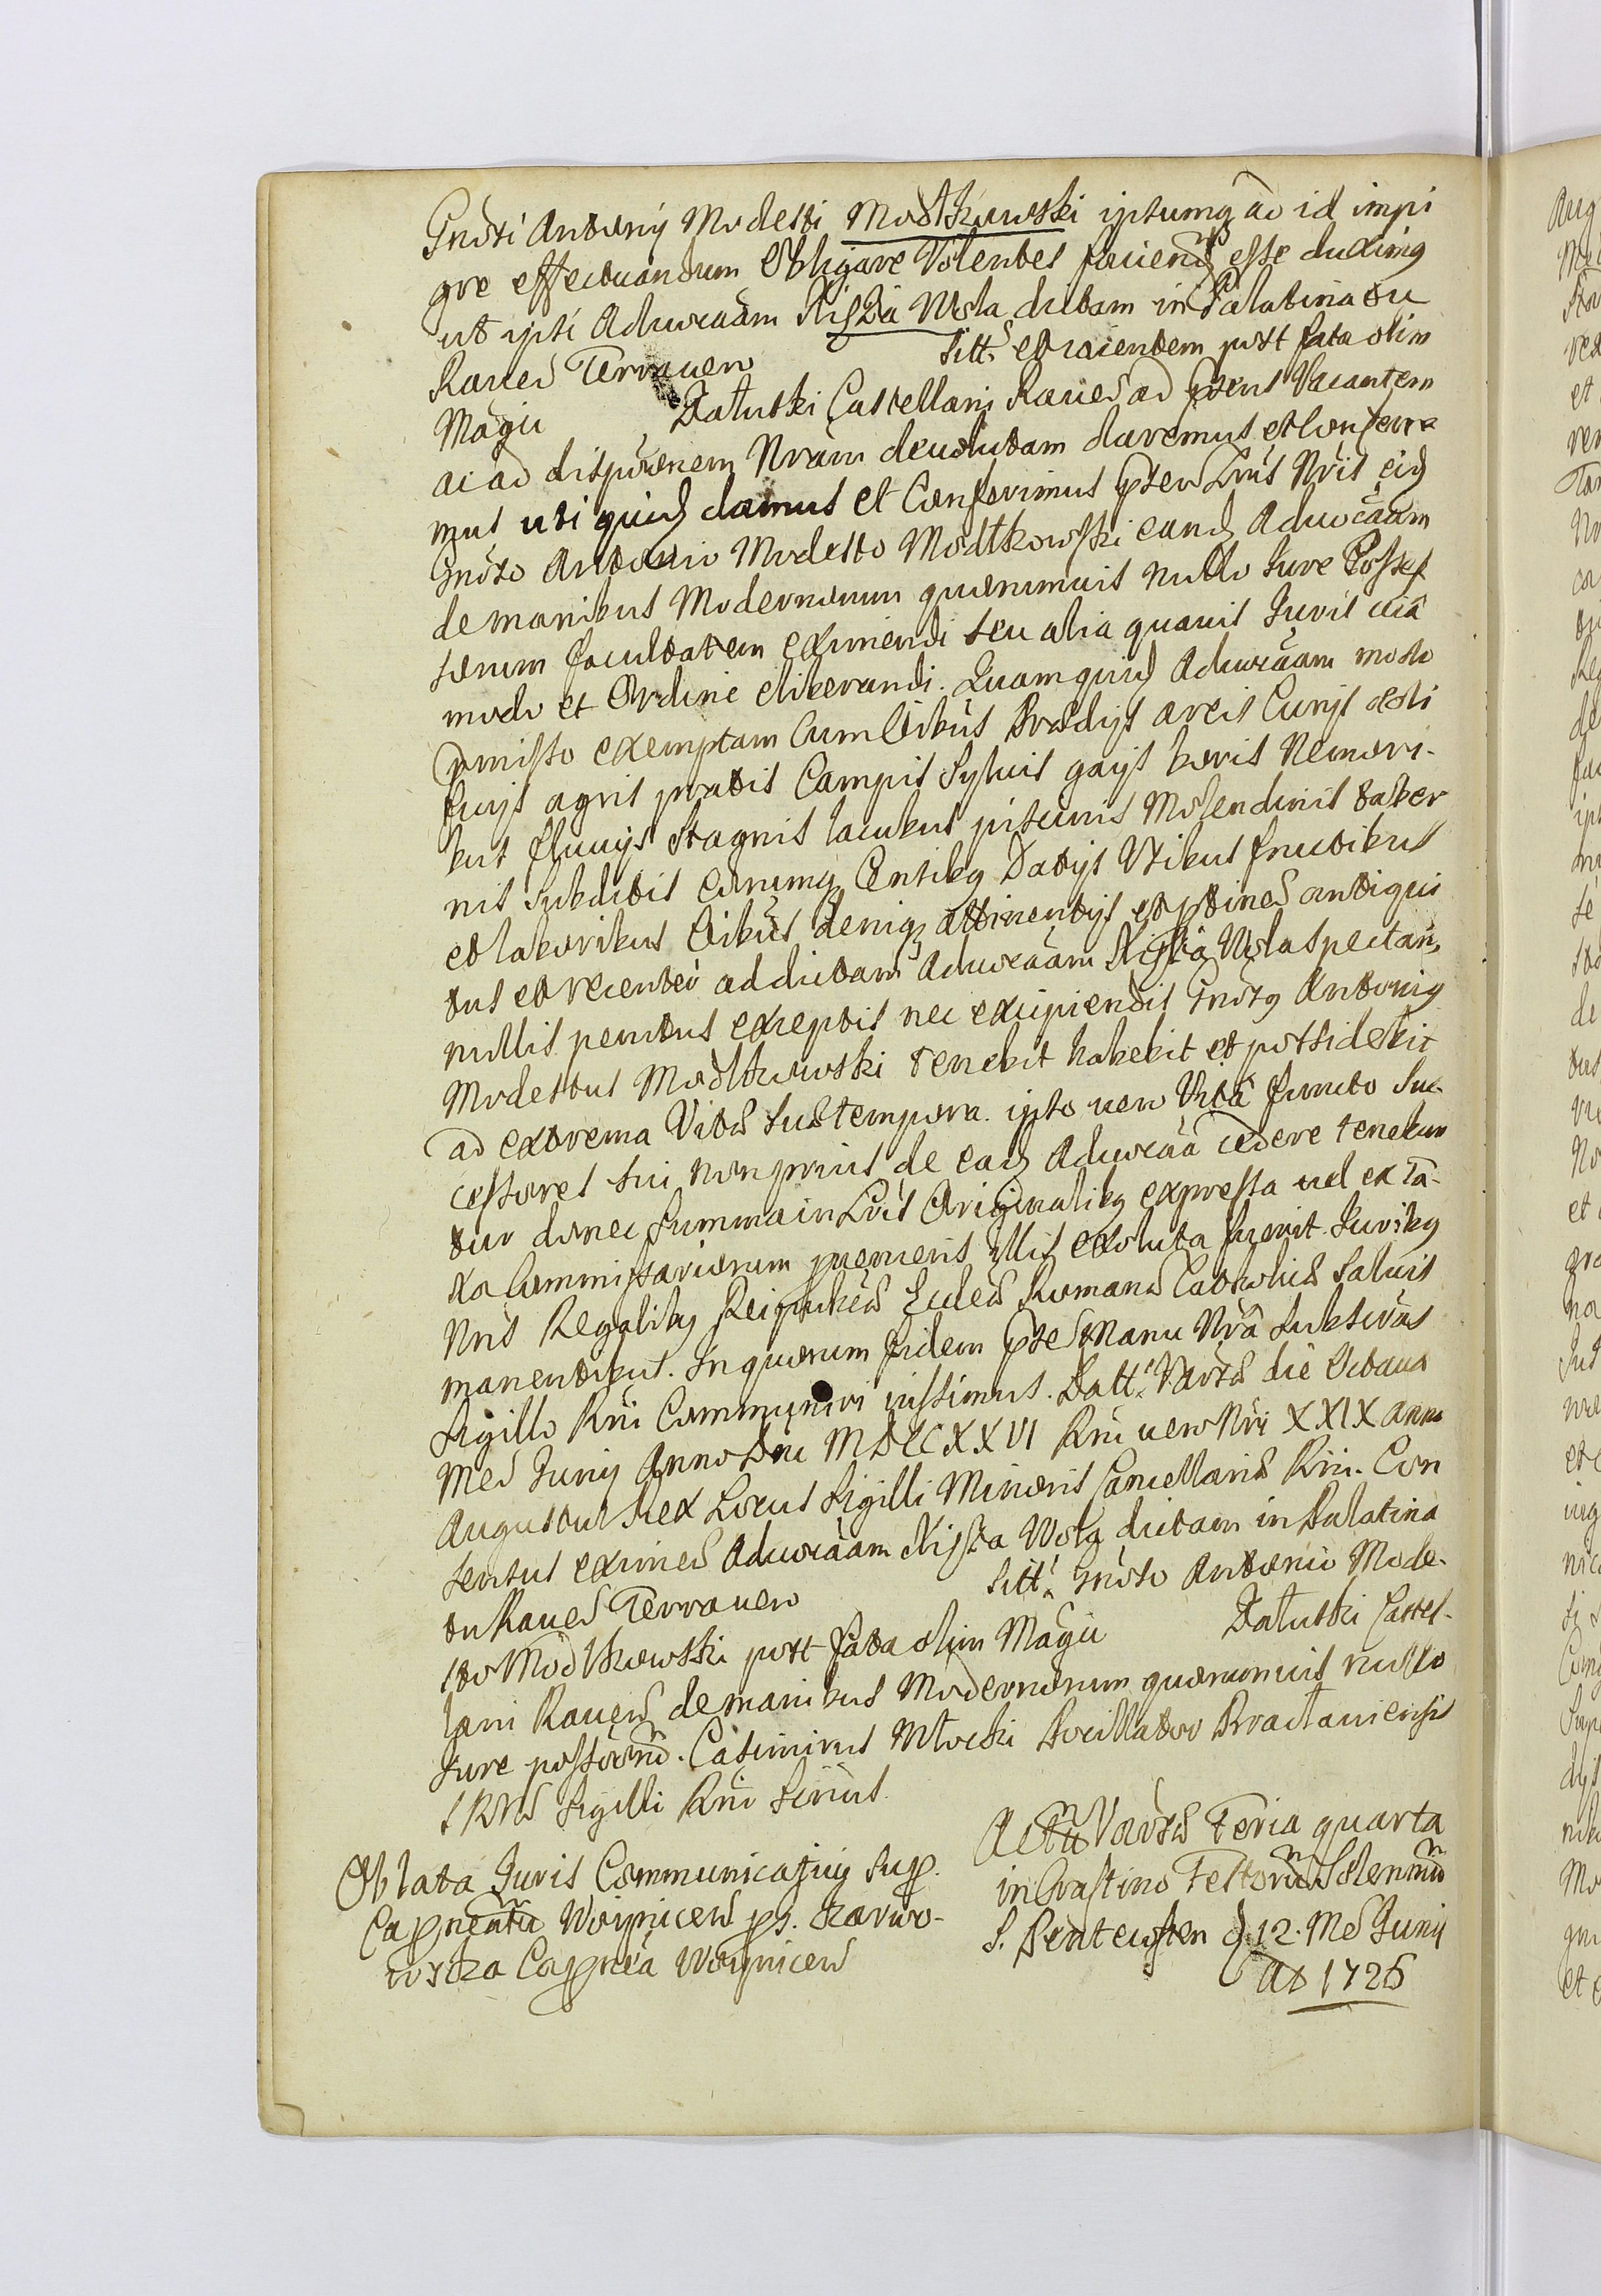 Gnosi Antonij Modesti Modlkowski ipsumq ad id impi
gre effectuandum Obligare Volentes faciend esse duximq
ut ipsi Aduocaam Wola dictam in Palatinatu
Rauen Terrauero sitt. et iacentem post fata olim
Magci Załuski Castellani Rauen ad psens Vacantem
ac ad disposonem Nram deuolutam daremus et Conferre
mus uti quid damus et Conferimus psen Lrus Nris eid
Gnoso Antonio Modesto Modlkowski eand Aduocaam
de manibus Modernorum quorumuis nullo Jure Posses
sorum facultatem eximendi seu alia quauis Juris uiâ
modo et Ordine eliberandi. Quam quid Aduocaam modo
pmisso exemptam Cum Oibus Prodijs areis Curijs aedi
ficijs agris pratis Campis Syluis gajis boris Nemori-
bus fluuijs Stagnis lacubus piscinis Molendinis taber
nis Subditis eorumq Censibq Datijs Utibus fructibus
et laboribus Oibus deniq attinentijs et ptined antiqui
tus et recenter ad dictam Aduocaam Wola spectan,
nullis penitus exceptis nec excipiendis Gnosq Antoniq
Modestus Modlkowski tenebit habebit et possidebit
ad extrema Vitae Suae tempora. ipso uero Vitâ functo Suc
cessores sui non prius de ead Aduocaa cedere tenebun
tur donec Summa in Lris Originalibq expressa uel ex Ta-
xa Commissariorum proueniens illis exoluta fuerit. Juribq
Nris Regalibq Reipubcae Eccles Romanae Catholicae Saluis
manentibus. In quorum fidem pse Manu Nrâ Subscrias
Sigillo Rni Communiri iussimus. Datt. Varsae die Octaua
Mes Junij Anno Dni MDCCXXVI Rni uero Nri XXIX anno
Augustus Rex Locus Sigilli Minoris Cancellariae Rni. Con
sensus eximed Aduocaam Wola dictam in Palatina
tu Rauen Terrauero sitt. Gnoso Antonio Mode-
sto Modlkowski post fata olim Magci Załuski Castel-
lani Rauen de manibus Modernorum quorumuis nullo
Jure possorum. Casimirus Młocki Pocillator Bractauiensis
SRMae Sigilli Rni Scrius.
Oblata Juris Communicatiui sup.
Capneatu Woynicen ps.
Capnea Woynicen
Actu Varsae Feria quarta
in Crastino Festoru Solenniu
S. Pentecosten d 12. Mes Junij
A 1726